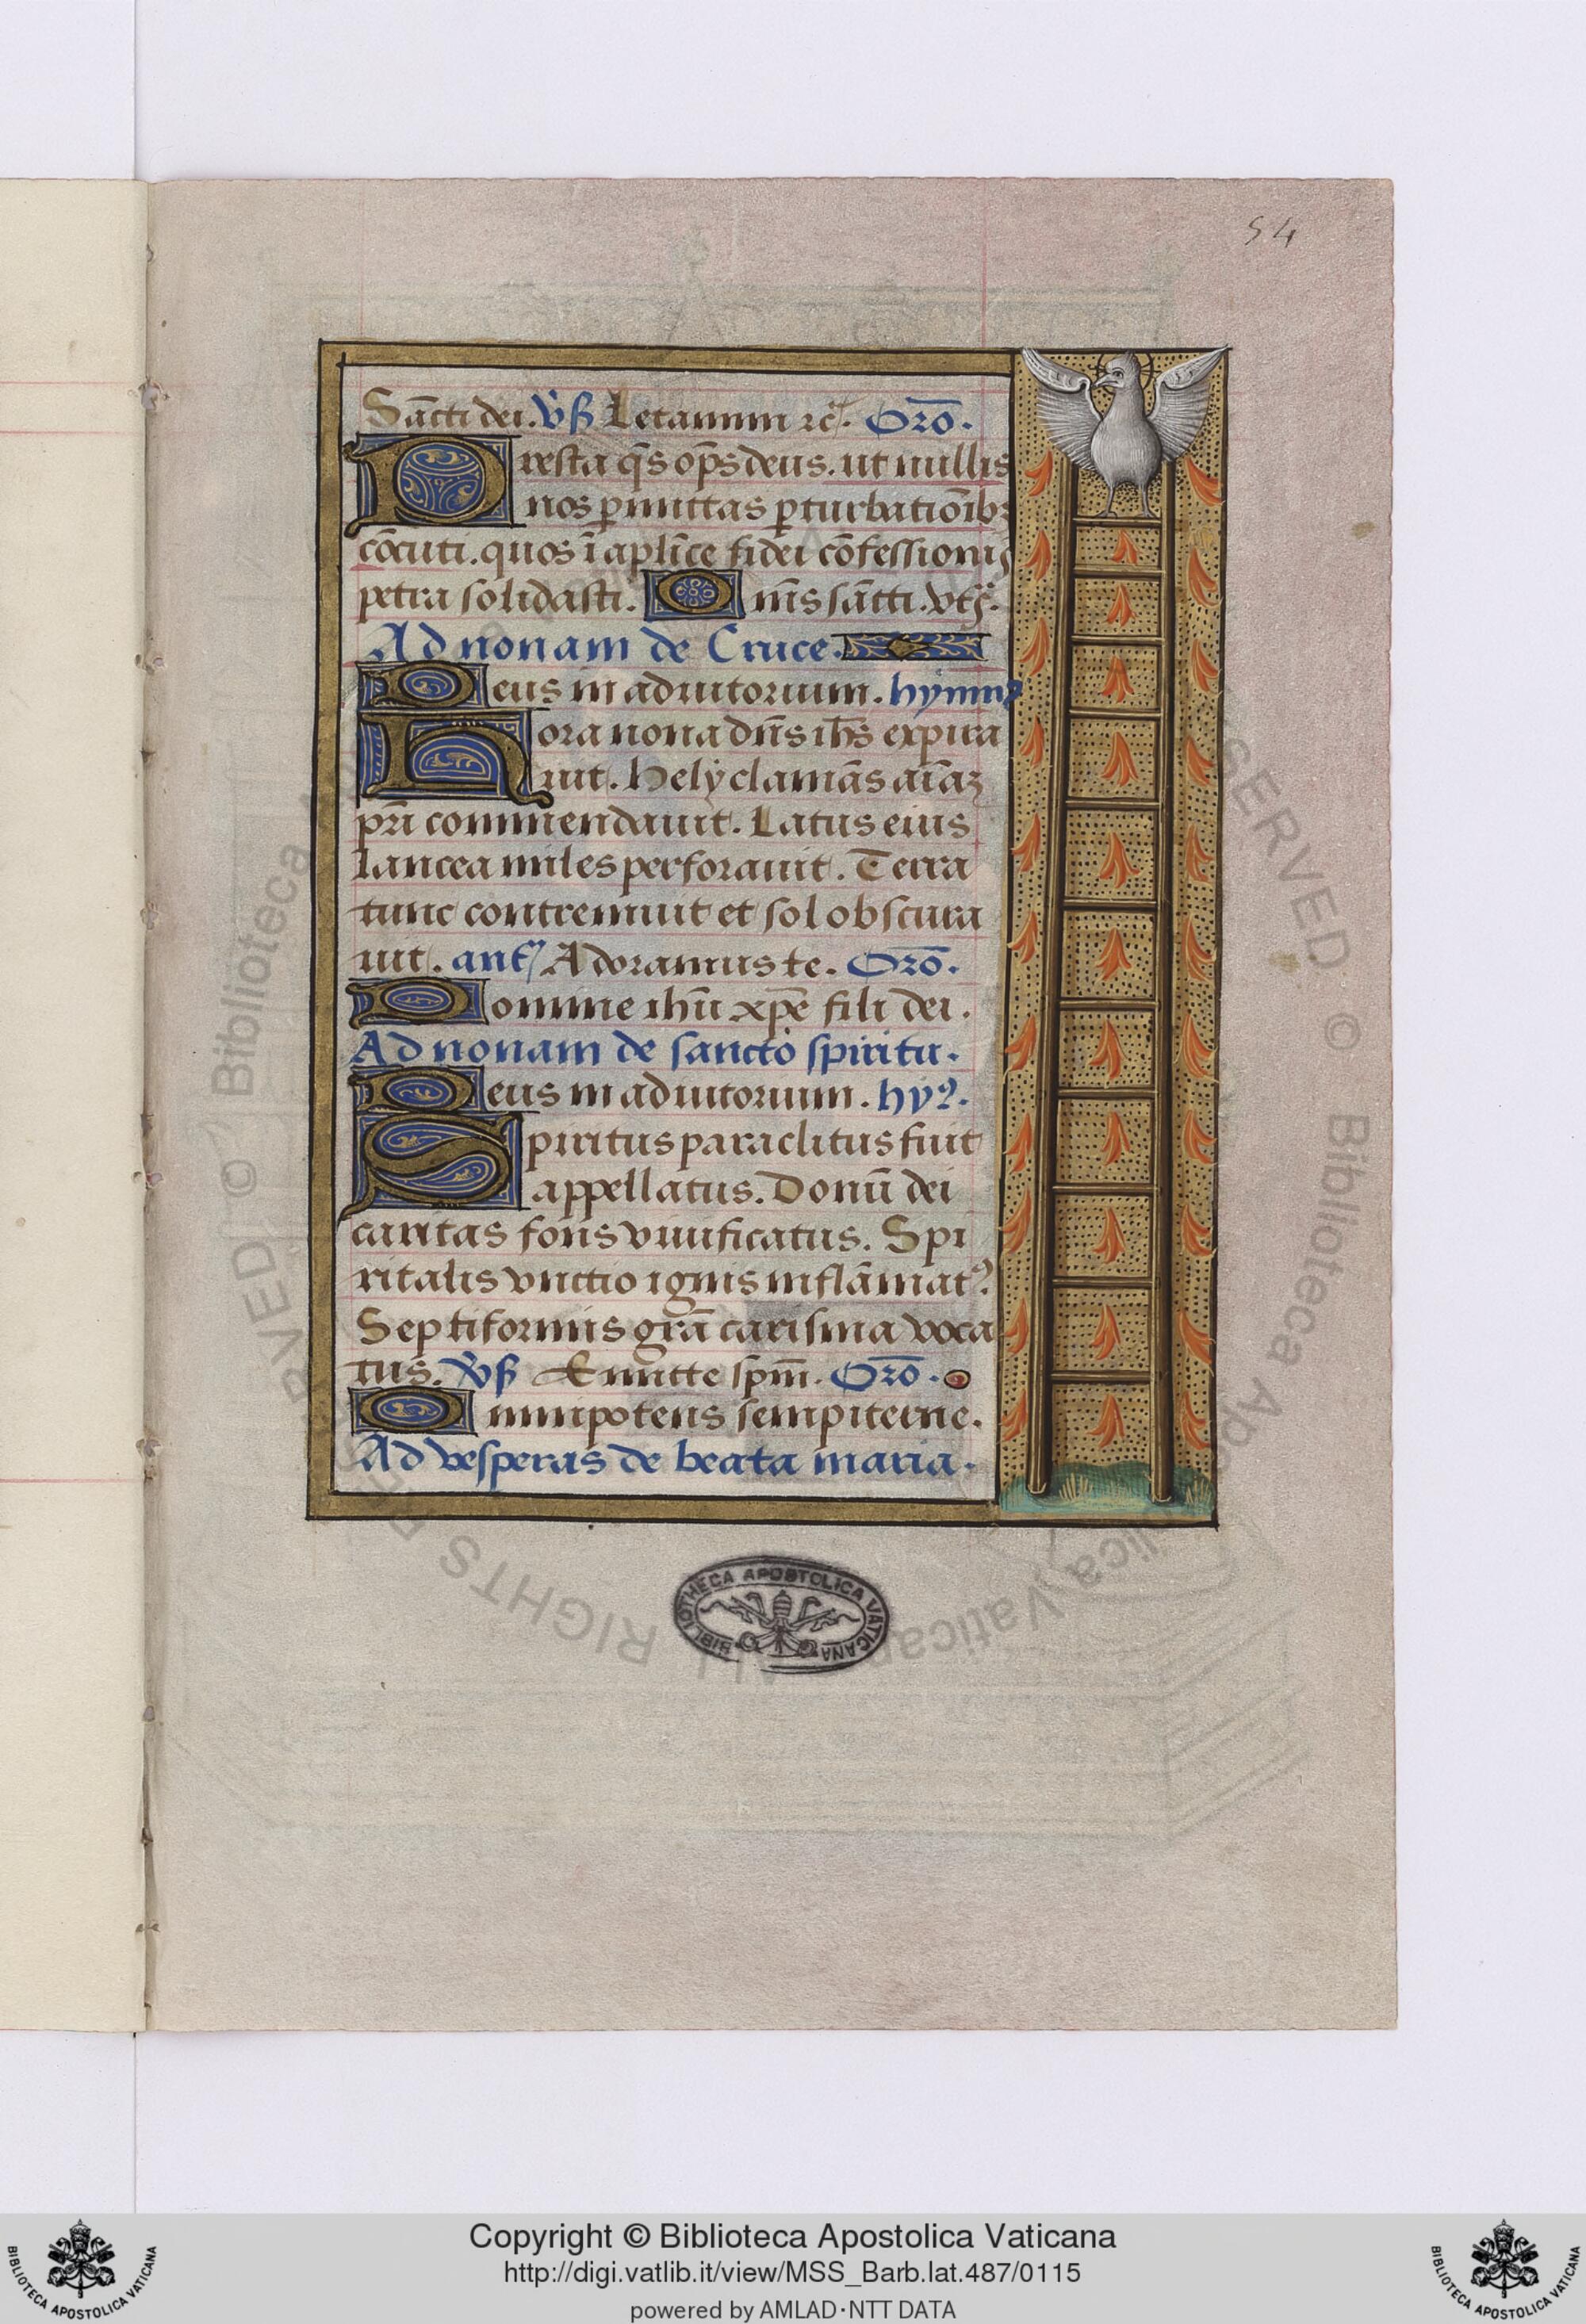 54
Sācti dei. v̄ß Letamini ⁊c̄. Orō.
Presta q̄s op̄s deus. ut nullis
nos p̱mittas p̱turbatiōibꝫ
cōcuti. quos ī aplīce fidei cōfessionis
petra solidasti. Om̄s sācti. vtꝫ.
Ad nonam de Cruce.
Deus in adiutorium. hymnꝰ
Hora nona dn̄s ih̄s expira
uit. Hely clamās aīaꝫ
pr̄i commendauit. Latus eius
lancea miles perforauit. Terra
tunc contremuit et sol obscura
uit. ant̄ Adoramus te. Orō.
Domine ihū xp̄e fili dei.
Ad nonam de sancto spiritu.
Deus in adiutorium. hyꝰ.
Spiritus paraclitus fuit
appellatus. Donū dei
caritas fons viuificatus. Spi
ritalis vnctio ignis inflāmatꝰ.
Septiformis grā carisma voca
tus. v̄ß Emitte sp̄m. Orō.
Omnipotens sempiterne.
Ad vesperas de beata maria.
BIBLIOTHECA APOSTOLICA VATICANA
Copyright © Biblioteca Apostolica Vaticana
http://digi.vatlib.it/view/MSS_Barb.lat.487/0115
powered by AMLAD·NTT DATA
BIBLIOTECA APOSTOLICA VATICANA
BIBLIOTECA APOSTOLICA VATICANA